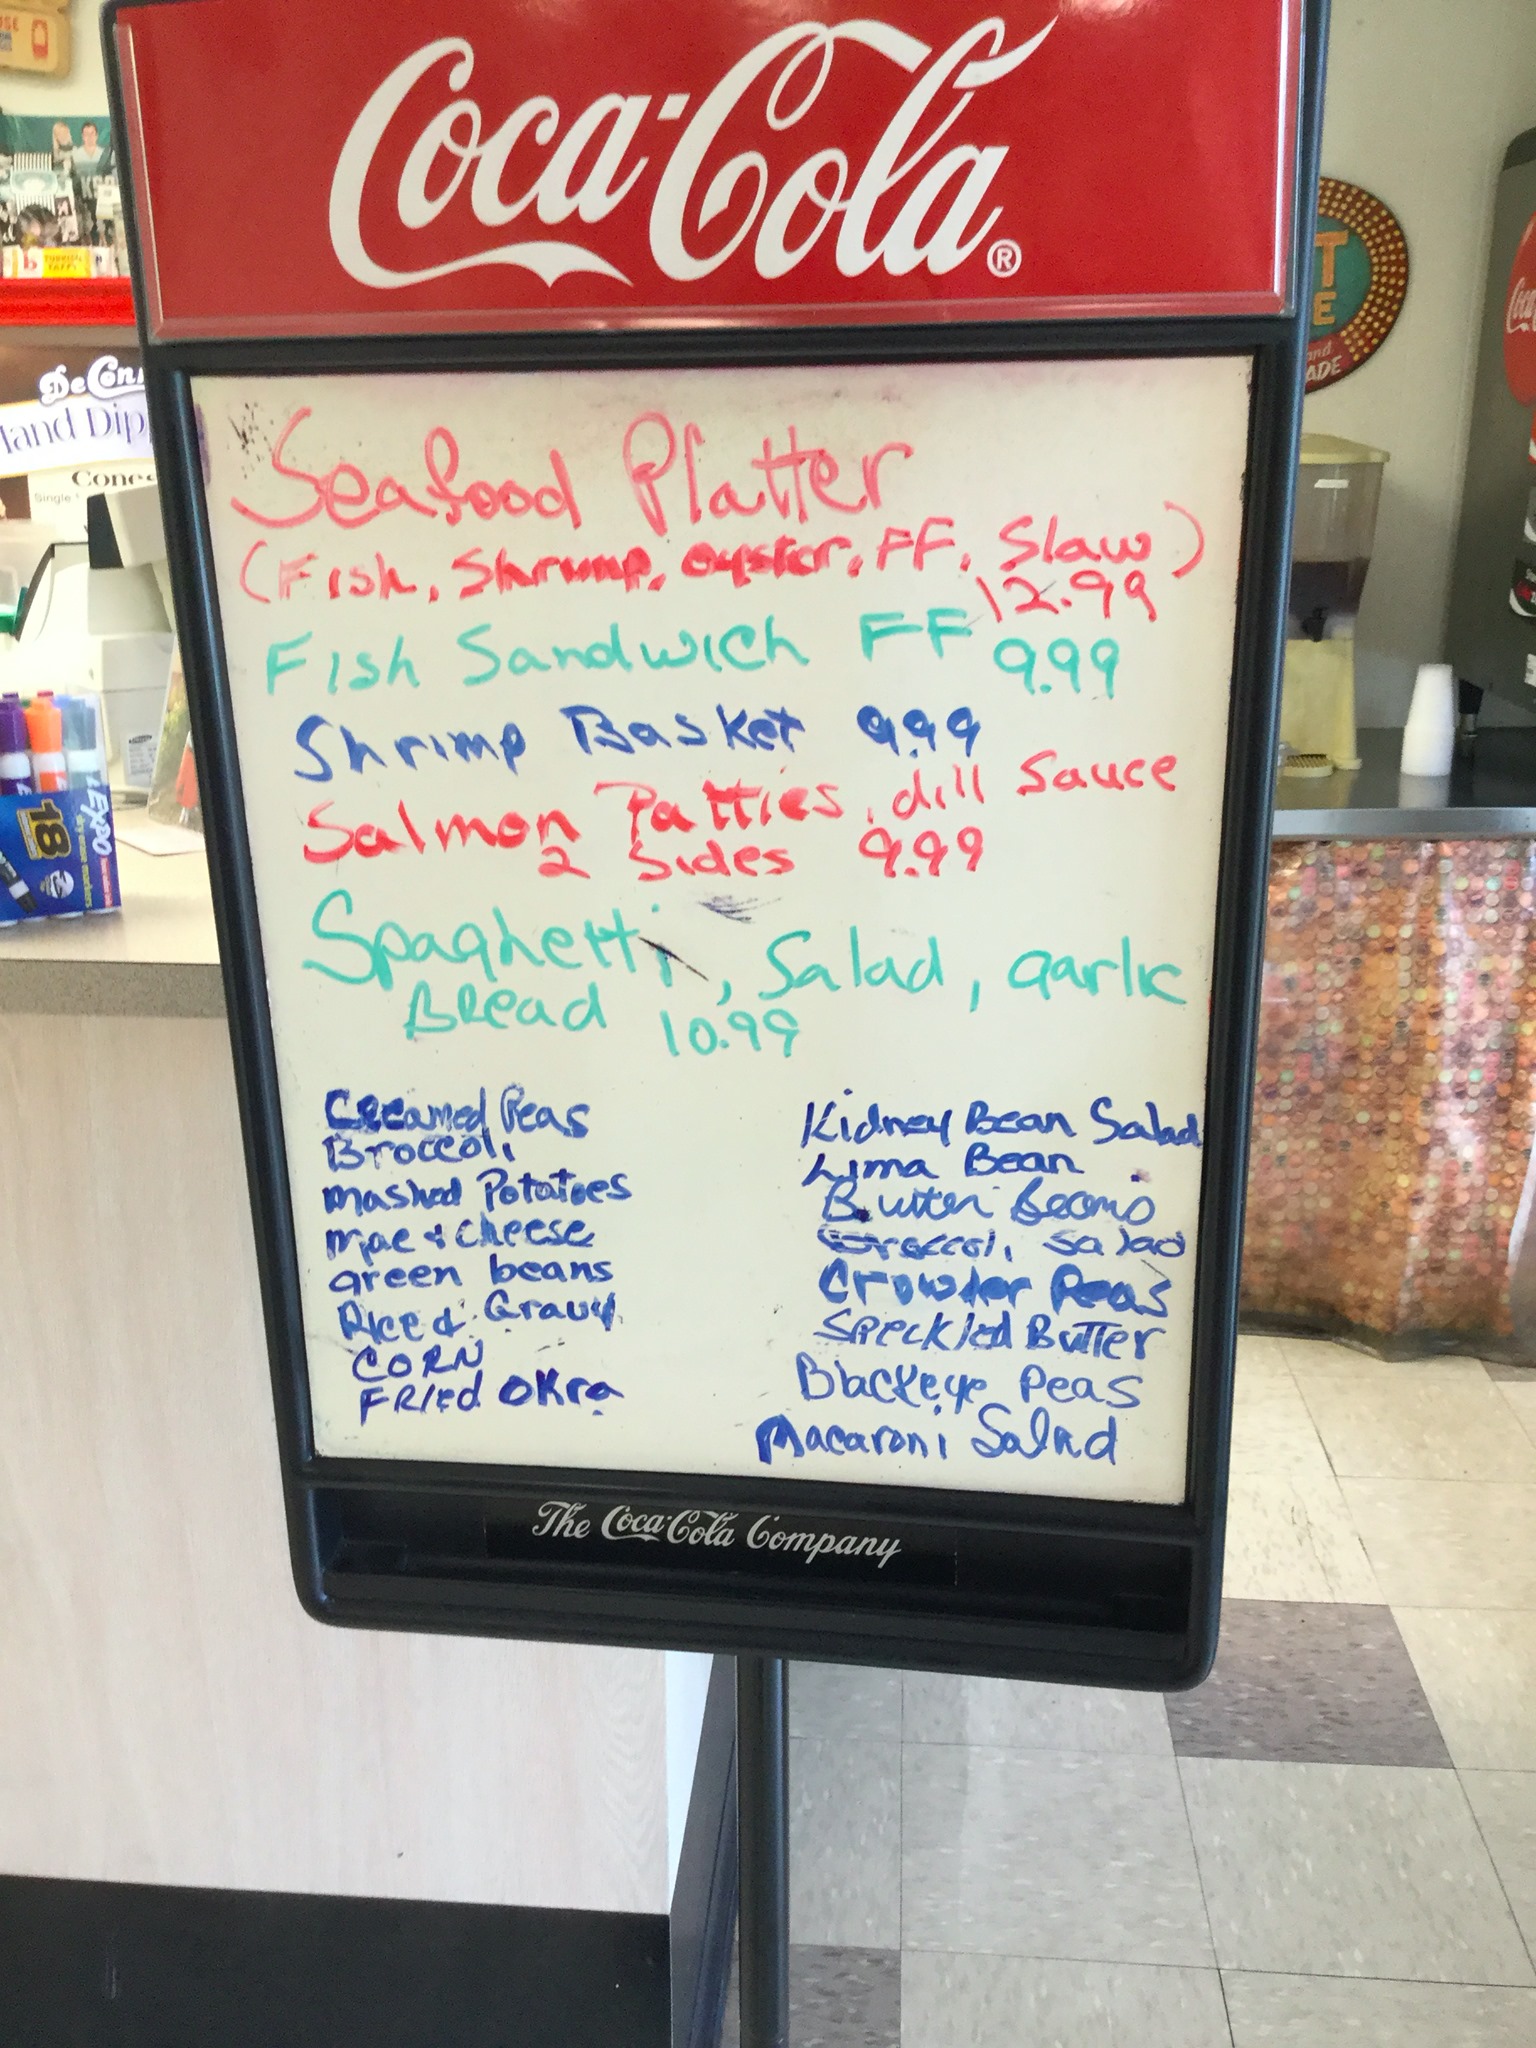 Coca-Cola®
Seafood Platter
(Fish, Shrimp, oyster, FF, Slaw)
12.99
Fish Sandwich FF 9.99
Shrimp Basket 9.99
Salmon Patties, dill Sauce
2 Sides 9.99
Spaghetti, Salad, garlic
Bread 10.99
Creamed Peas
Broccoli
mashed Potatoes
mac & cheese
green beans
Rice & Gravy
CORN
FRied OKra
Kidney Bean Salad
Lima Bean
Butter Beans
Broccoli Salad
Crowder Peas
Speckled Butter
Blackeye Peas
Macaroni Salad
The Coca-Cola Company
Cones
Single
EXPO
18
TURKISH
TAFFY